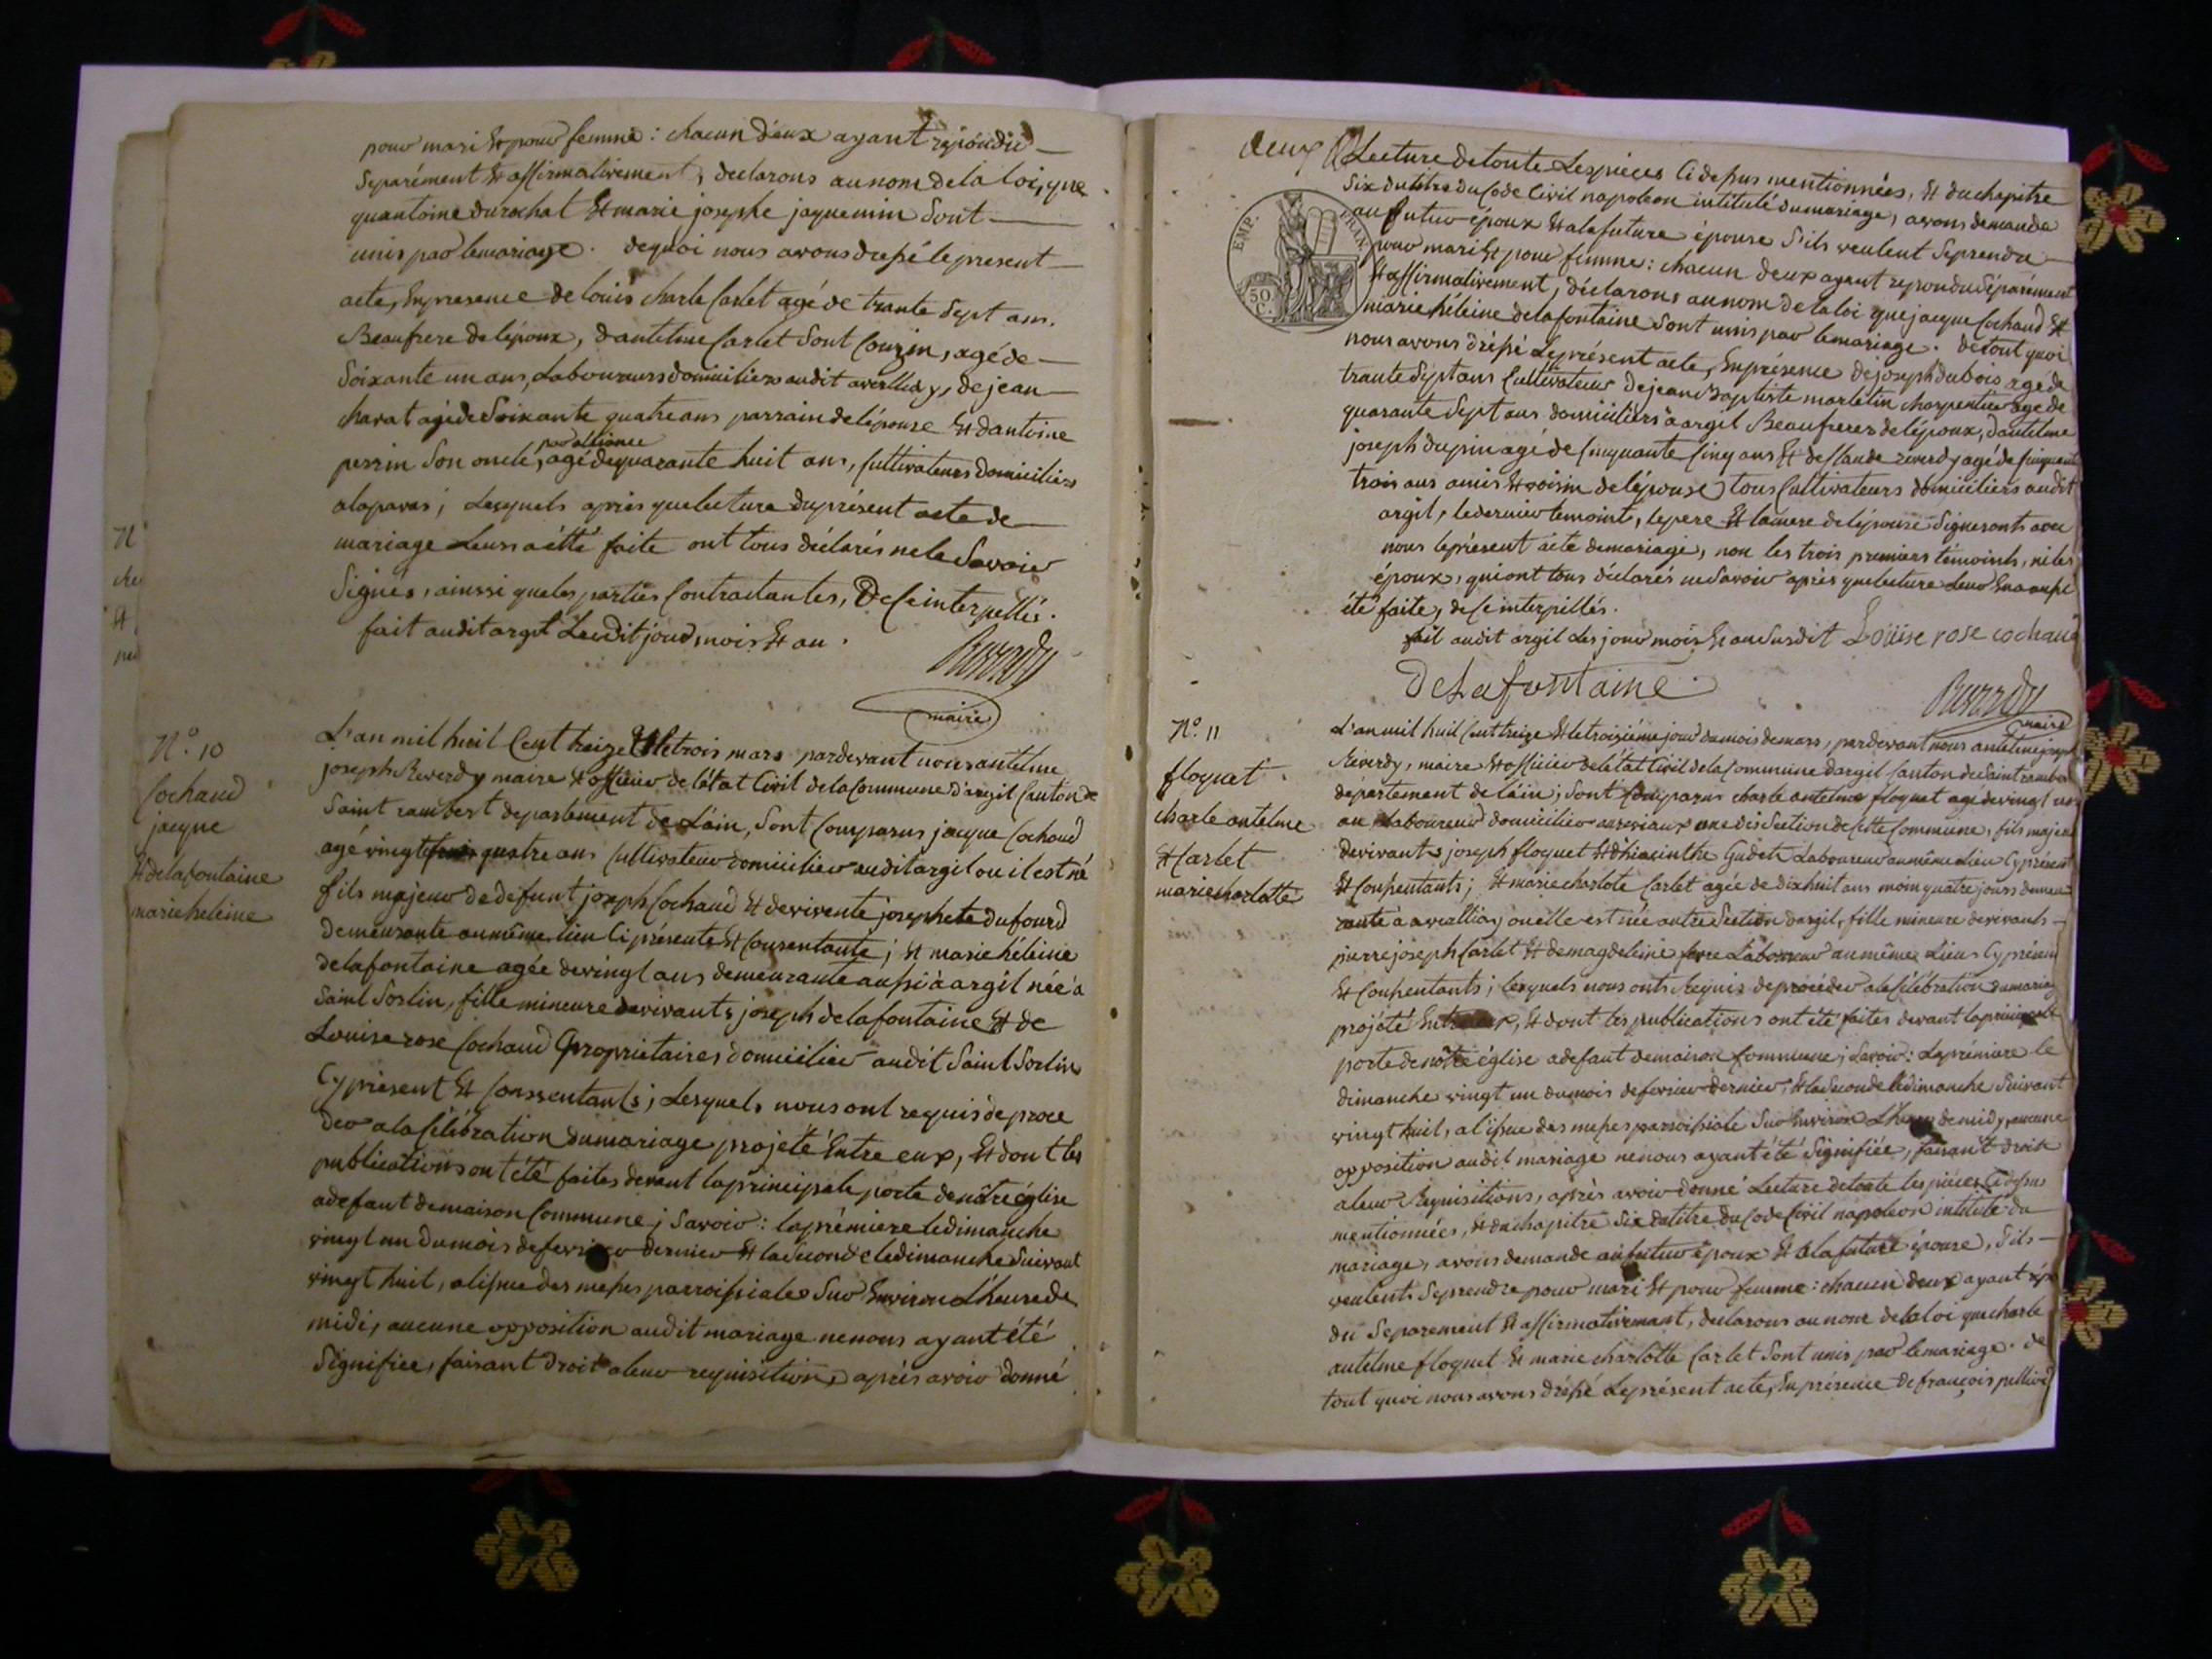 pour mari et pour femme : chacun d'eux ayant repondu
separément et affirmativement, declarons au nom de la loi, que
qu'antoine durochat et marie josephe jaquemin sont
unis par le mariage. de quoi nous avons dressé le present
acte, en presence de louis charle Carlet agé de trante sept ans.
Beaufrere de lépoux, d'antelme Carlet sont Couzin, agé de
soixante un ans, Laboureurs domiciliers audit averlliay, de jean
charat agé de soixante quatre ans parrain de lépouse et d'antoine
perrin son oncle, par alliance agé de quarante huit ans, Cultivateurs domiciliers
alaparas ; Lesquels après que lecture du présent acte de
mariage Leurs a étté faite ont tous déclarés ne le Savoir
Signés, ainssi que les parties Contractantes, de Ce interpellés.
fait audit argil Ledit jour, mois et an.
Reverdy
maire
N.º 10
Cochaud
jacque
et delafontaine
marie heleine
L'an mil huit Cent treize et le trois mars pardevant nous antelme
joseph Reverdy maire et officier de létat Civil de la Commune d'argil Canton de
saint rambert departement de L'ain, sont Comparus jacque Cochaud
agé vingt quatre ans Cultivateur domicilier audit argil ou il est né
fils majeur de defunt joseph Cochaud et de vivente josephete dufourd
demeurante au même lieu Ci présente et Consentante ; et marie héleine
delafontaine agée de vingt ans demeurante aussi à argil née à
saint Sorlin, fille mineure de vivants joseph delafontaine et de
Louise rose Cochaud propriétaires domicilier audit Saint Sorlin
Cy présent et Conssentants ; Lesquels nous ont requis de proce
der a la Célébration du mariage projeté Entre eux, et dont les
publications ont été faites devant la principale porte de nôtre église
a defaut de maison Commune ; savoir : la prémiere le dimanche
vingt un du mois de fevrier dernier et la seconde le dimanche suivant
vingt huit, a lissue des messes parroissiales sur Environ L'heure de
midi, aucune opposition audit mariage ne nous ayant été
Signifiée, faisant Droit a leur requisition, après avoir donné
deux
EMP. FRAN.
50 C.
Lecture de toute Les pieces Ci dessus mentionnées, et du chapitre
six du titre du Code Civil napoleon intitulé du mariage, avons demandé
au futur époux et a la future épouse s'ils veulent se prendre
pour mari et pour femme : chacun deux ayant repondu séparément
et affirmativement, déclarons au nom de la loi que jacque Cochaud et
marie héleine delafontaine sont unis par le mariage. de tout quoi
nous avons dressé Le présent acte, En présence de joseph dubois agé de
trante sept ans Cultivateur de jean Baptiste martelin charpentier agé de
quarante sept ans domiciliers à argil Beaufreres de lépoux, d'antelme
joseph dupin agé de Cinquante Cinq ans et de Claude reverdy agé de Cinquante
trois ans amis et voisin de lépouse tous Cultivateurs domiciliers audit
argil, le dernier temoint, le pere et la mere de lépouse signeronts avec
nous le présent acte de mariage, non les trois premiers témoints, ni les
époux, qui ont tous déclarés ne Savoir après que lecture Leur En a aussi
été faite, de Ce interpellés.
fait audit argil Les jour mois et an susdit Loüise rose cochaud
DeLafontaine
Reverdy
maire
N.º 11
floquet
charle antelme
et Carlet
marie charlotte
L'an mil huit Cent treize et le troisiéme jour du mois de mars, pardevant nous antelme joseph
Reverdy, maire et officier de létat Civil de la Commune d'argil Canton de Saint rambert
département de Làin ; sont Comparus charle antelme floquet agé de vingt un
an, Laboureur domicilier une des Section de Cette Commune, fils majeur
de vivants joseph floquet et d'hiacinthe Gudet Laboureur au même lieu Cy présent
et Consentants ; et marie charlote Carlet agée de dix huit ans moin quatre jours demeu
rante à averlliay ou elle est née autre Section dargil, fille mineure de vivants
pierre joseph Carlet et de magdeleine Laboureur au même Lieu Cy présent
et Consentants ; lesquels nous onts Requis de procéder a la Célébration du mariage
projeté Entre eux, et dont les publications ont été faites devant la principale
porte de nôtre église a defaut de maison Commune ; savoir : La prémiere le
dimanche vingt un du mois de fevrier dernier, et la seconde le dimanche Suivant
vingt huit, a lissue des messes parroissiale sur Environ L'heure de midy, aucune
opposition audit mariage ne nous ayant été Signifiée, faisant droit
a leur Requisitions, après avoir donné Lecture de toute les piéces Ci dessus
mentionnées, et du chapitre six du titre du Code Civil napoleon intitulé du
mariage, avons demande au futur époux et a la future épouse, s'ils
veulents se prendre pour mari et pour femme : chacun deux ayant répon
du separement et affirmativemant, declarons au nom de la loi que charle
antelme floquet et marie charlotte Carlet sont unis par le mariage. de
tout quoi nous avons dréssé Le présent acte, En présence de françois pellicé